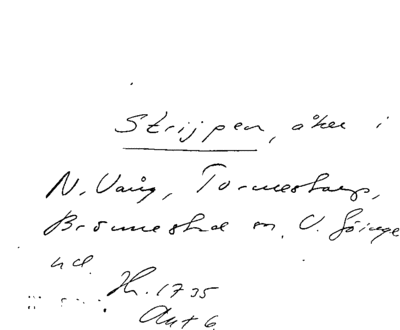 Strijpen, åker i
N. Vång, Tormestorp,
Brönnestad sn, V. Göinge
hd. Hr. 1735
Akt 6